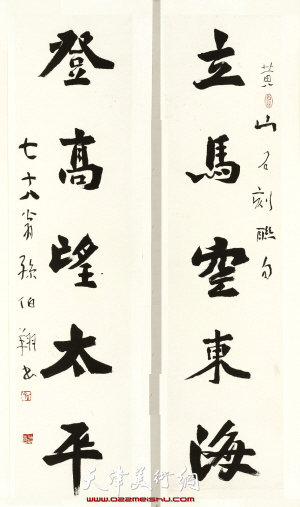 黄山石刻联句
立馬空東海
登高望太平
七十八翁孫伯翔书
天津美術網
www.022meishu.com